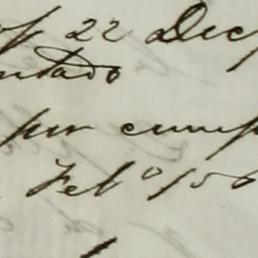 22 Dec
ntado
por cump
Feb.o /56